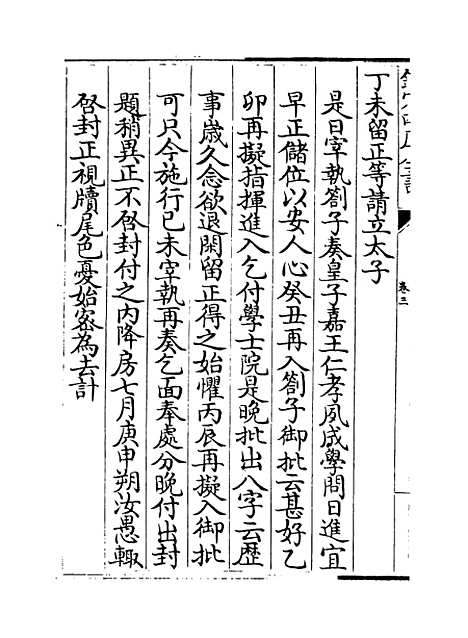 丁未留正等請立太子
是日宰執劄子奏皇子嘉王仁孝夙成學問日進宜
早正儲位以安人心癸丑再入劄子御批云甚好乙
卯再擬指揮進入乞付學士院是晚批出八字云歷
事歲久念欲退閑留正得之始懼丙辰再擬入御批
可只今施行已未宰執再奏乞面奉處分晚付出封
題稍異正不啓封付之内降房七月庚申朔汝愚輙
啓封正視牘尾色憂始密為去計
卷三